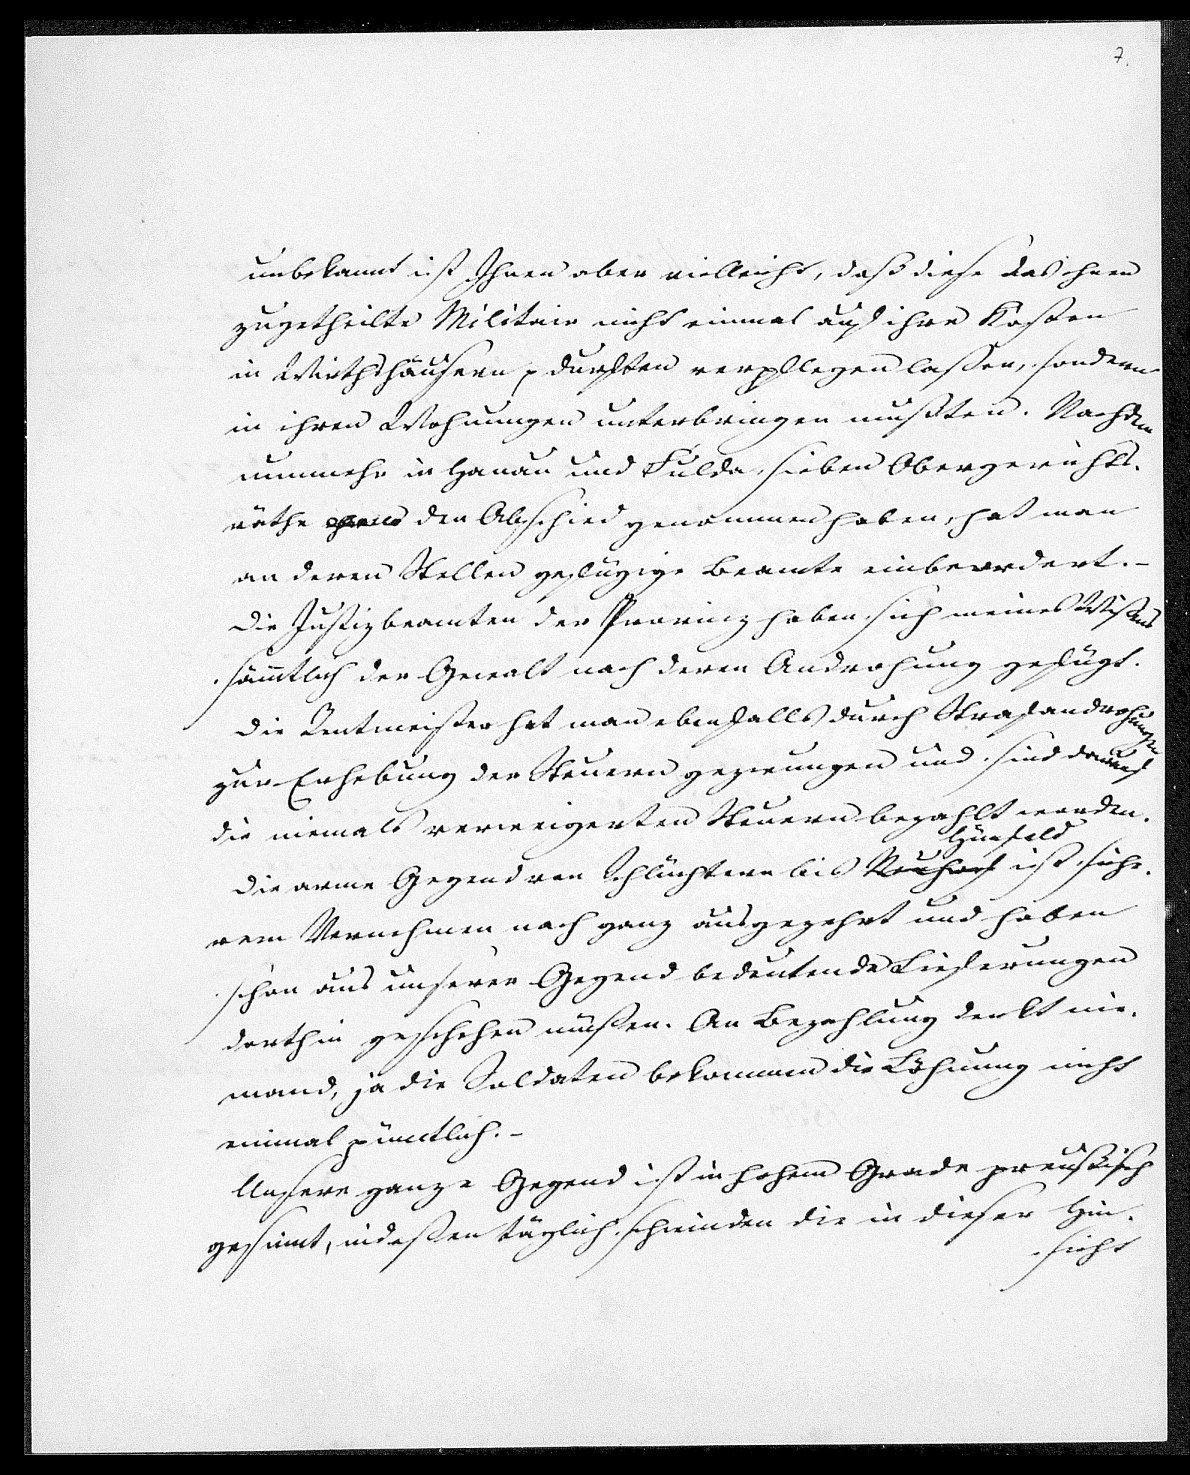 7.
unbekannt ist Ihnen aber vielleicht, daß diese das ihnen
zugetheilte Militair nicht einmal auf ihre Kosten
in Wirthshäusern durften verpflegen lassen, sondern
in ihren Wohnungen unterbringen mußten. Nachdem
nunmehr in Hanau und Fulda sieben Obergerichts-
räthe den Abschied genommen haben, hat man
an deren Stellen gefügige Beamte einbeordert. –
Die Justizbeamten der Provinz haben sich meines Wissens
sämtlich der Gewalt nach deren Androhung gefügt.
Die Rentmeister hat man ebenfalls durch Strafandrohungen
zur Erhebung der Steuern gezwungen und sind darauf
die niemals verweigerten Steuern bezahlt worden.
Hünfeld
Die arme Gegend von Schlüchtern bis Neuhof ist siche-
rem Vernehmen nach ganz ausgezehrt und haben
schon aus unserer Gegend bedeutende Lieferungen
dorthin geschehen müssen. An Bezahlung denkt nie-
mand, ja die Soldaten bekommen die Löhnung nicht
einmal püncktlich. –
Unsere ganze Gegend ist in hohem Grade preußisch
gesinnt, indessen täglich schwinden die in dieser Hin-
sicht